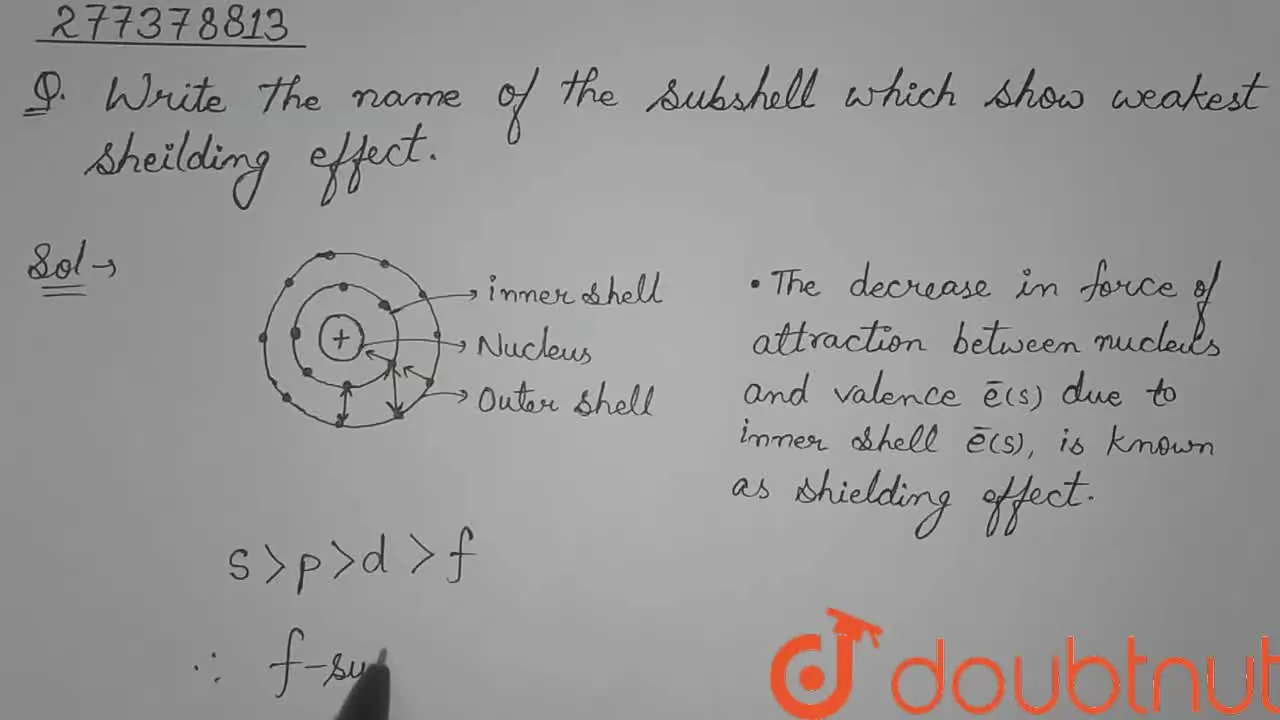 277378813
Q. Write the name of the subshell which show weakest
sheilding effect.
Sol →
inner shell
Nucleus
Outer shell
+
• The decrease in force of
attraction between nucleus
and valence ē(s) due to
inner shell ē(s), is known
as shielding effect.
s > p > d > f
∴ f-su
doubtnut